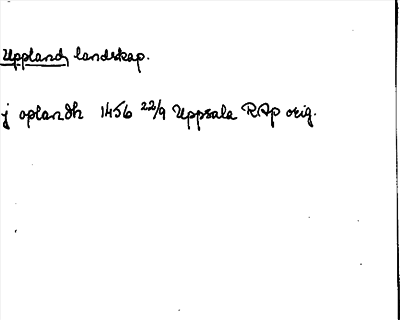 Uppland, landskap.
j oplandh 1456 22/9 Uppsala RAp orig.